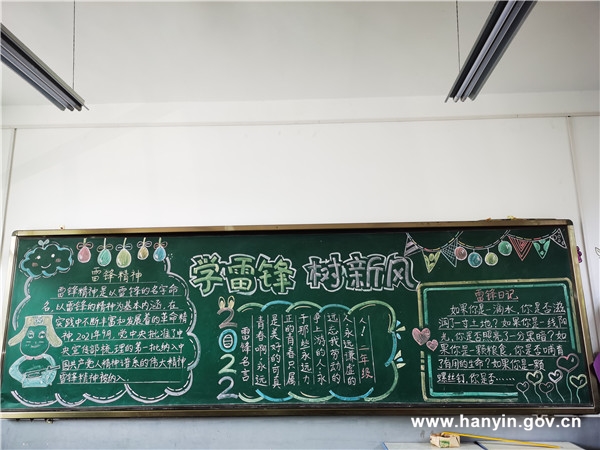 学雷锋 树新风
雷锋精神
雷锋精神是以雷锋的名字命
名,以雷锋的精神为基本内涵,在
实践中不断丰富和发展着的革命精
神,2021年9月,党中央批准了中
央宣传部梳理的第一批纳入中
国共产党人精神谱系的伟大精神
雷锋精神被纳入.
2022
雷锋名言
青春啊,永远
是美好的可真
正的青春只属
于那些永远力
争上游的人永
远忘我劳动的
人永远谦虚的
人!
雷锋日记
如果你是一滴水,你是否滋
润了一寸土地?如果你是一线阳
光,你是否照亮了一分黑暗?如
果你是一颗粮食,你是否哺育
了有用的生命?如果你是一颗
螺丝钉,你是否……
www.hanyin.gov.cn